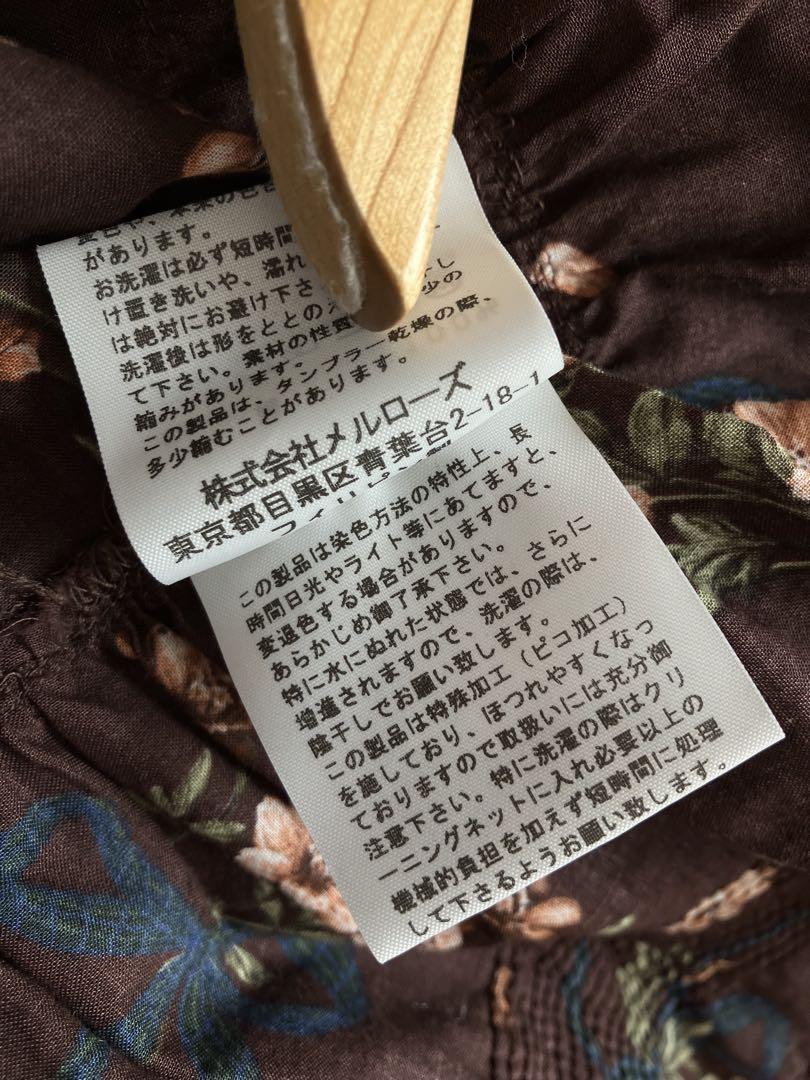 があります。
お洗濯は必ず短時間
け置き洗いや、濡れ
は絶対にお避け下さ
洗濯後は形をととの
て下さい。素材の性質
縮みがあります。
この製品は、タンブラー乾燥の際、
多少縮むことがあります。
株式会社メルローズ
東京都目黒区青葉台2-18-1
この製品は染色方法の特性上、長
時間日光やライト等にあてますと、
変退色する場合がありますので、
あらかじめ御了承下さい。
特に水にぬれた状態では、さらに
増進されますので、洗濯の際は、
陰干しでお願い致します。
この製品は特殊加工（ピコ加工）
を施しており、ほつれやすくなっ
ておりますので取扱いには充分御
注意下さい。特に洗濯の際はクリ
ーニングネットに入れ必要以上の
機械的負担を加えず短時間に処理
して下さるようお願い致します。